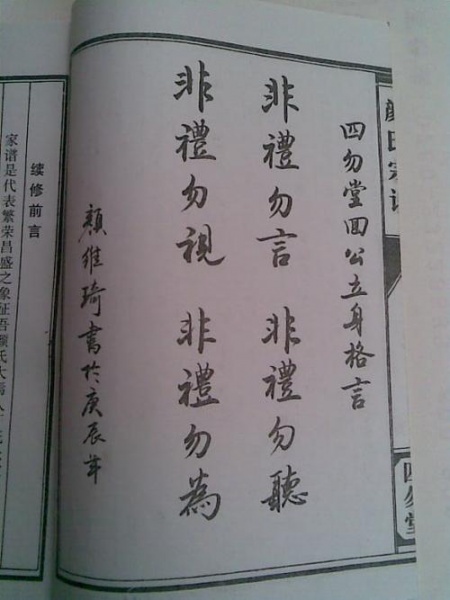 颜氏宗谱
四勿堂
四勿堂囬公立身格言
非禮勿言 非禮勿聽
非禮勿視 非禮勿為
顏維琦書於庚辰年
续修前言
家谱是代表繁荣昌盛之象征吾颜氏大